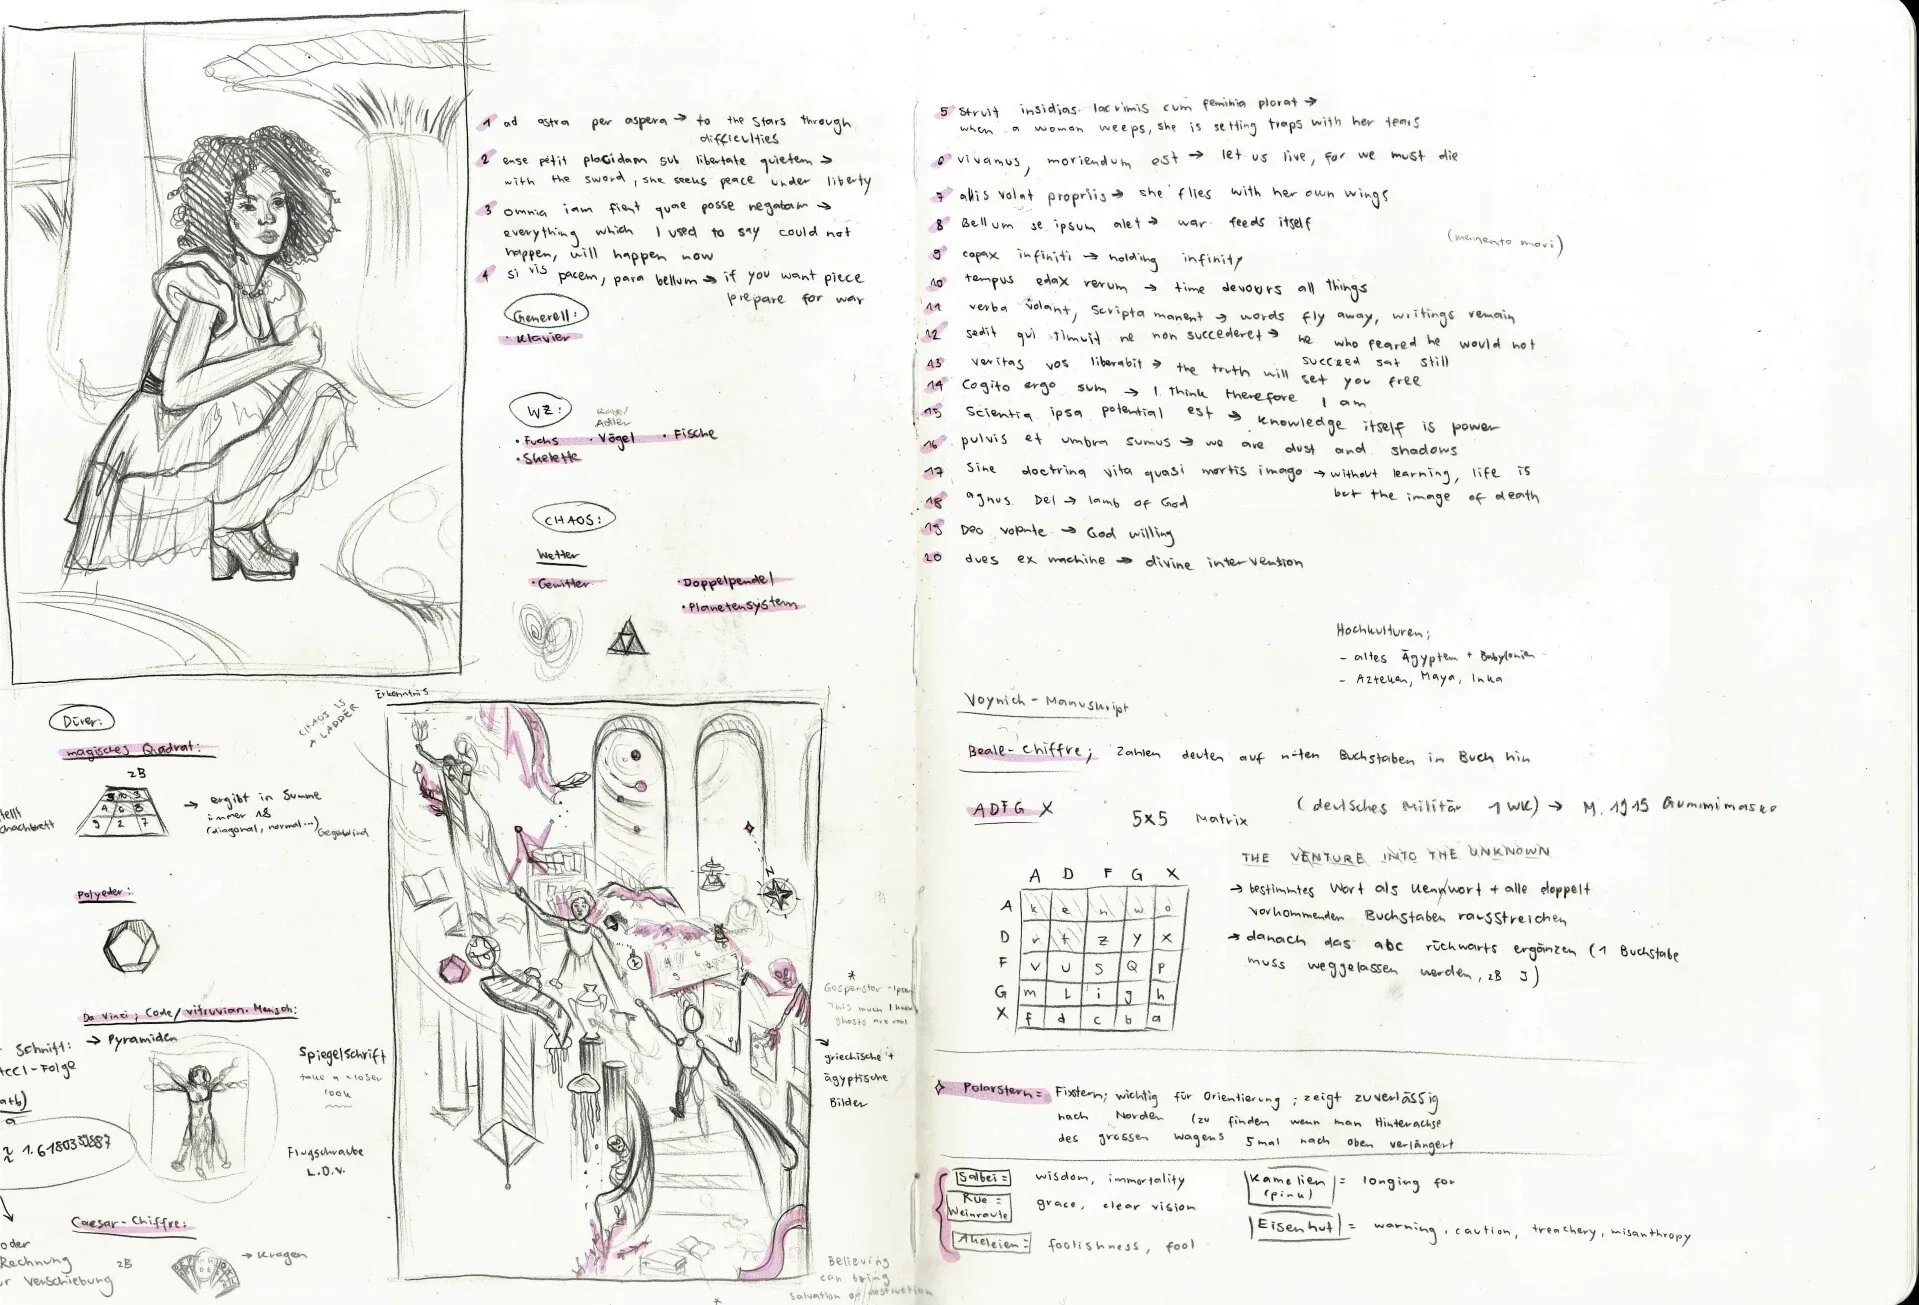 1 ad astra per aspera → to the stars through
difficulties
2 ense petit placidam sub libertate quietem →
with the sword, she seeks peace under liberty
3 omnia iam fient quae posse negabam →
everything which I used to say could not
happen, will happen now
4 si vis pacem, para bellum → if you want piece
prepare for war
Generell:
· Klavier
WZ:
Adler
· Fuchs · Vögel · Fische
· Skelette
CHAOS:
Wetter
· Gewitter
· Doppelpendel
· Planetensystem
Dürer:
magisches Quadrat:
zB
→ ergibt in Summe
immer 18
(diagonal, normal...)
Polyeder:
Da Vinci; Code/vitruvian. Mensch:
→ Pyramiden
Schnitt:
cci-Folge
a+b)
a
≈ 1.6180339887
Spiegelschrift
take a closer
look
Flugschraube
L.D.V.
Caesar-Chiffre:
oder
Rechnung
Verschiebung
zB
→ Kragen
Erkenntnis
CHAOS IS
A LADDER
N
*
→ griechische +
ägyptische
Bilder
Believing
can bring
salvation or destruction
*
5 struit insidias lacrimis cum feminia plorat →
when a woman weeps, she is setting traps with her tears
6 vivamus, moriendum est → let us live, for we must die
7 allis volat propriis → she flies with her own wings
8 Bellum se ipsum alet → war feeds itself
(memento mori)
9 capax infiniti → holding infinity
10 tempus edax rerum → time devours all things
11 verba volant, scripta manent → words fly away, writings remain
12 sedit qui timuit ne non succederet → he who feared he would not
succeed sat still
13 veritas vos liberabit → the truth will set you free
14 Cogito ergo sum → I think therefore I am
15 Scientia ipsa potential est → knowledge itself is power
16 pulvis et umbra sumus → we are dust and shadows
17 Sine doctrina vita quasi mortis imago → without learning, life is
but the image of death
18 agnus Dei → lamb of God
19 Deo volente → God willing
20 dues ex machine → divine intervention
Hochkulturen:
- altes Ägypten + Babylonien
- Azteken, Maya, Inka
Voynich-Manuskript
Beale-Chiffre; Zahlen deuten auf n-ten Buchstaben in Buch hin
ADFG X 5x5 Matrix (deutsches Militär 1 WK) → M. 1915 Gummimaske
THE VENTURE INTO THE UNKNOWN
→ bestimmtes Wort als Kennwort + alle doppelt
vorkommenden Buchstaben rausstreichen
→ danach das abc rückwärts ergänzen (1 Buchstabe
muss weggelassen werden, zB J)
A D F G X
A k e n w o
D r t z y x
F v u s q p
G m l i g h
X f d c b a
Polarstern = Fixstern; wichtig für Orientierung; zeigt zuverlässig
nach Norden (zu finden wenn man Hinterachse
des grossen Wagens 5mal nach oben verlängert
Salbei = wisdom, immortality
Rue =
Weinraute
grace, clear vision
Akeleien = foolishness, fool
Kamelien
(pink)
= longing for
Eisenhut = warning, caution, treachery, misanthropy